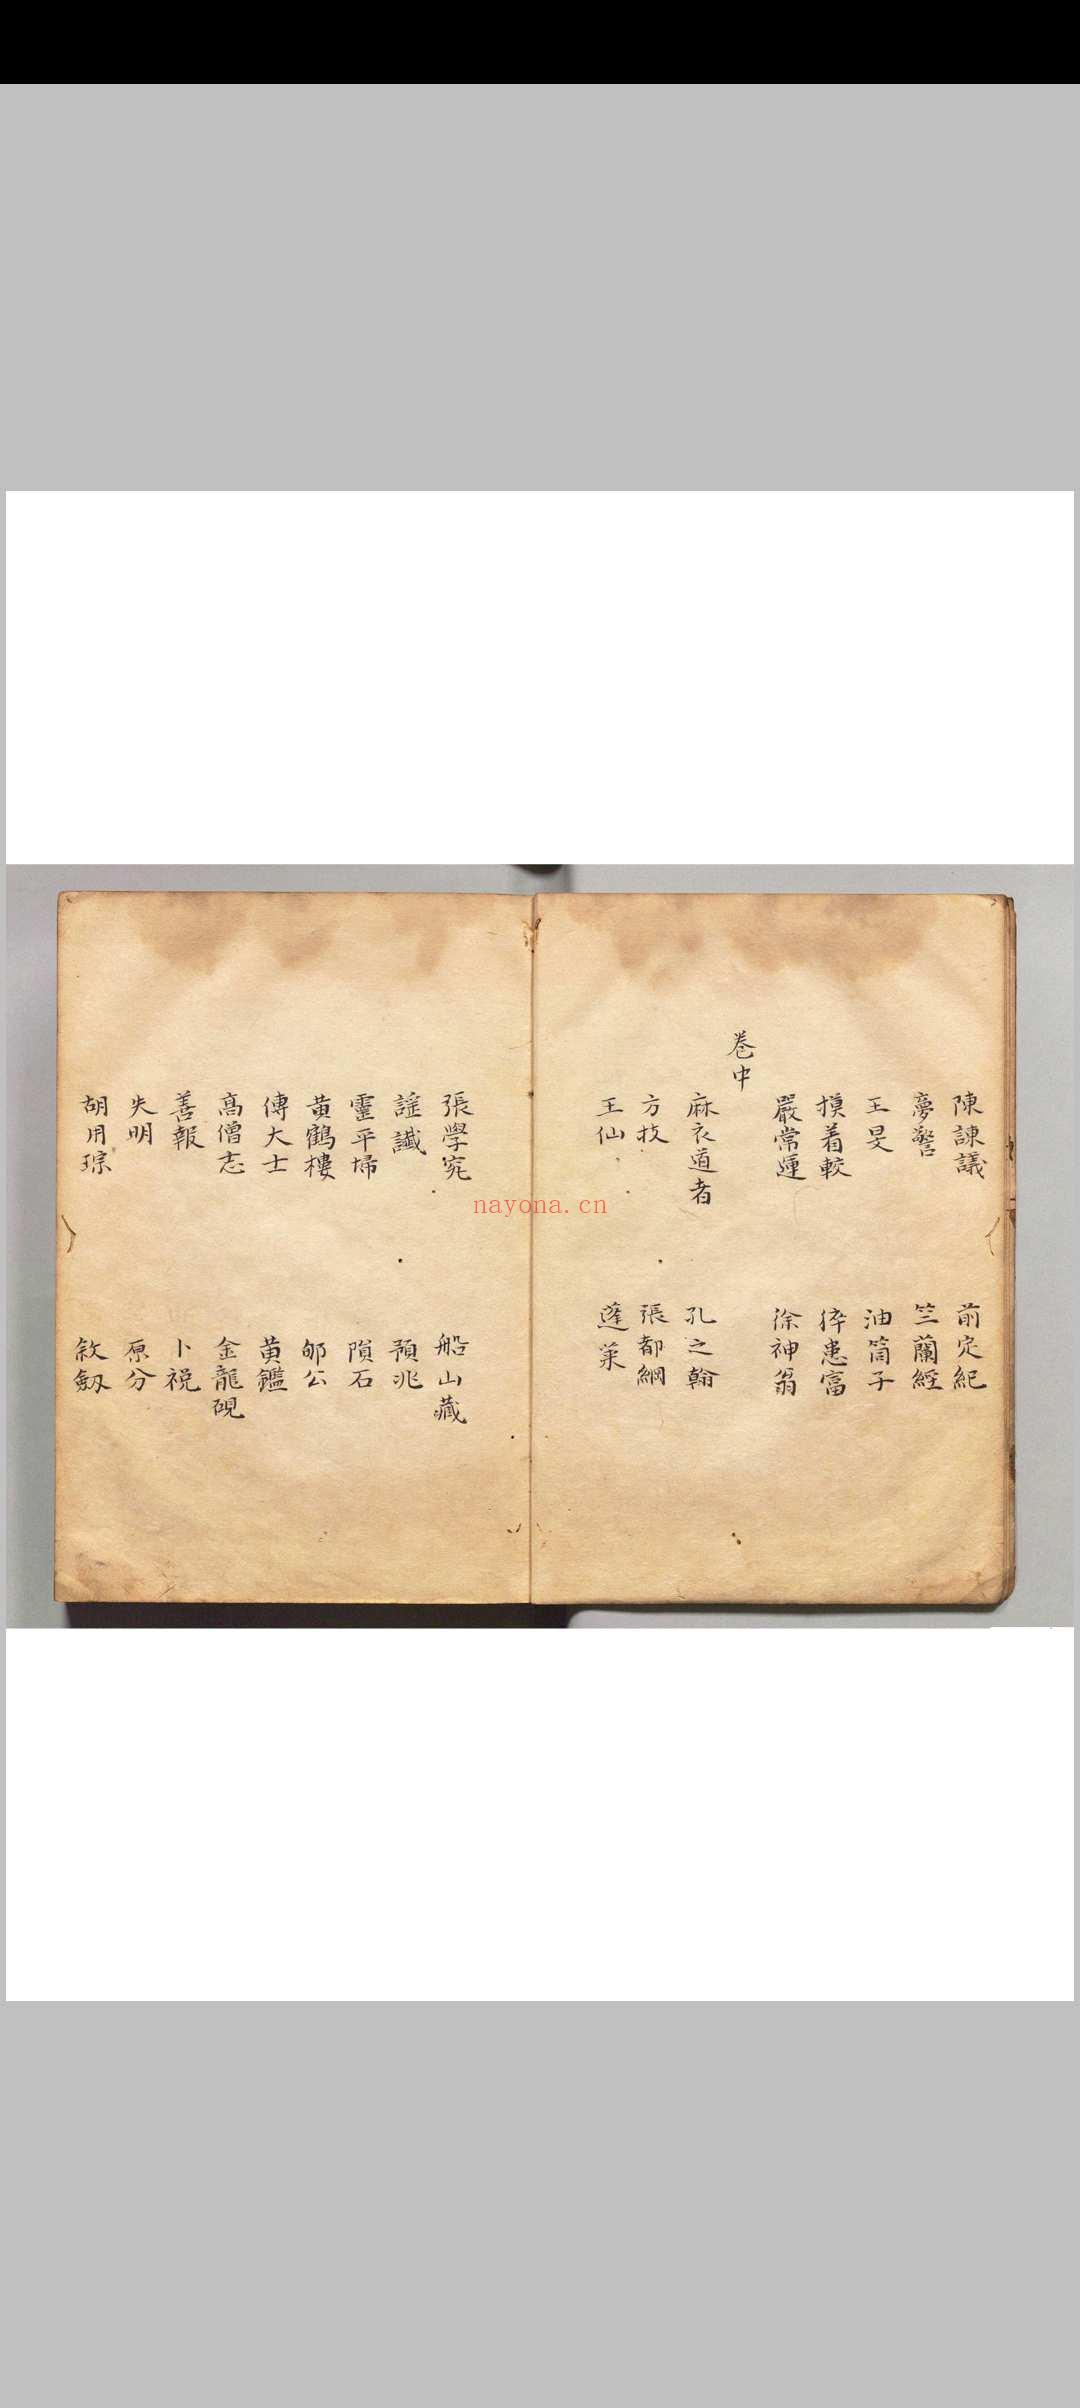 陳諫議 前定紀
夢警 竺蘭經
王旻 油筒子
摸着較 猝患富
嚴常運 徐神翁
卷中
麻衣道者 孔之翰
方技 張都綱
王仙 蓬萊
張學究 船山藏
謡讖 預兆
靈平埽 隕石
黄鶴樓 邻公
傅大士 黄鑑
高僧志 金龍硯
善報 卜祝
失明 原分
胡用琮 敘劔
nayona.cn